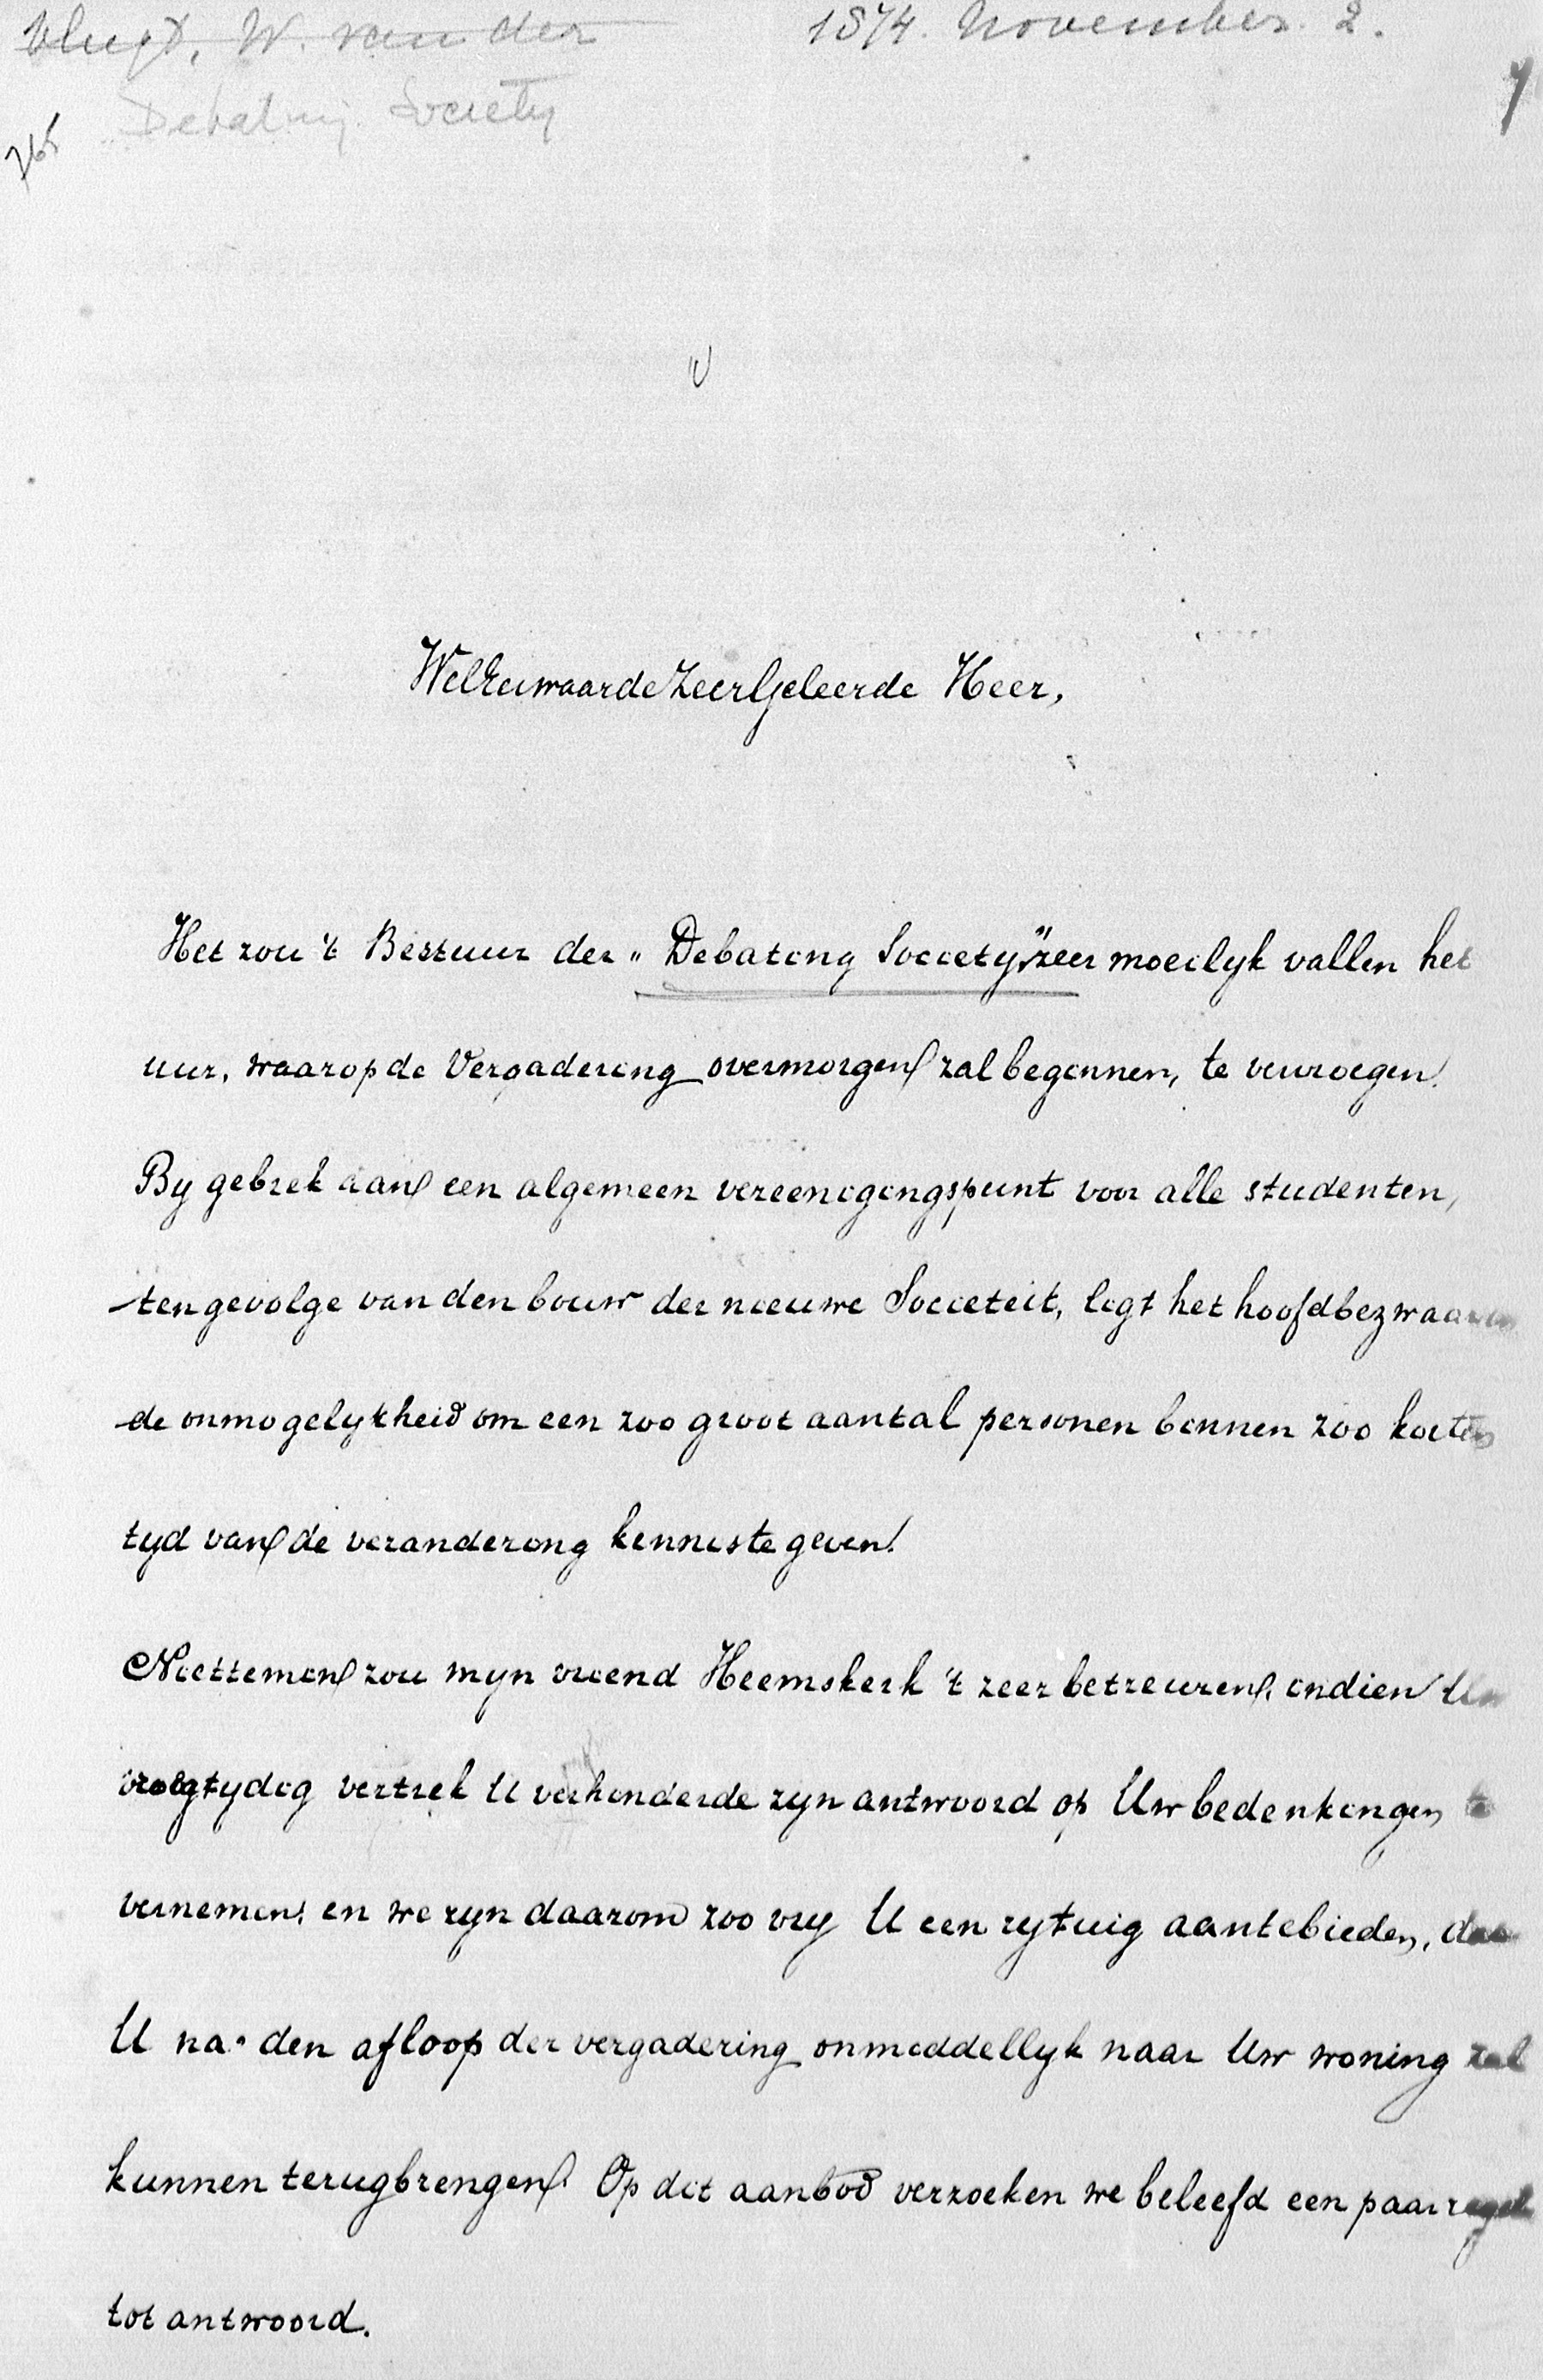 Vlugt, W. van der 1874. November. 2.
Debating Society
WelEerwaardeZeerGeleerde Heer,
Het zou 't Bestuur der „Debating Society" zeer moeilyk vallen het
uur, waarop de Vergadering overmorgen zal beginnen, te vervroegen.
By gebrek aan een algemeen vereenigingspunt voor alle studenten,
ten gevolge van den bouw der nieuwe Societeit, ligt het hoofdbezwaar in
de onmogelykheid om een zoo groot aantal personen binnen zoo korten
tyd van de verandering kennis te geven.
Niettemin zou myn vriend Heemskerk 't zeer betreuren, indien Uw
vroegtydig vertrek U verhinderde zyn antwoord op Uw bedenkingen te
vernemen, en we zyn daarom zoo vry U een rytuig aantebieden, dat
U na den afloop der vergadering onmiddellyk naar Uw woning zal
kunnen terugbrengen. Op dit aanbod verzoeken we beleefd een paar regels
tot antwoord.